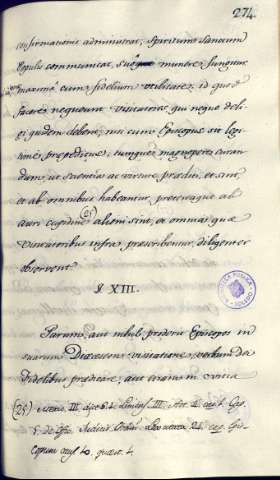 274.
confirmationis administrat, Spiritum Sanctum
Populis communicat, suoque munere fungitur
maxima cum fidelium utilitate; id quod
facere nequeunt Visitatores qui neque deli-
gi quidem debent, nisi cum Episcopus sit legi-
time præpeditus, tumque magnopere curan-
dum ut scientia ac virtute præditi, et sint,
et ab omnibus habeantur, procul que ab
auri cupidine (25) alieni sint, et omnia quæ
Visitatoribus infra præscribentur, diligenter
observent.
§ XIII.
Parum, aut nihil proderit Episcopos in
suarum Diœceseon visitatione, verbum Dei
fidelibus prædicare, aut etiam in
(25) III
Episcopum 4. quæst. 4